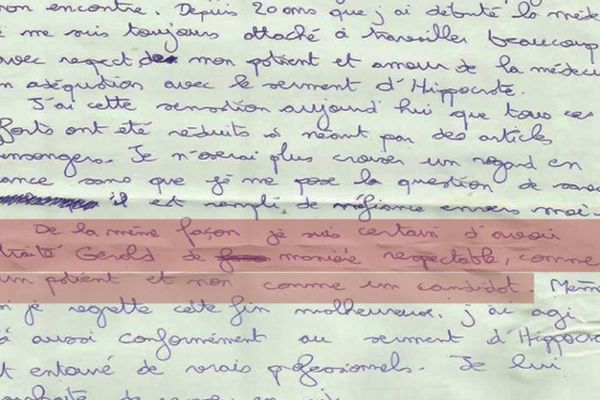 non encontre. Depuis 20 ans que j'ai débuté la méde
je me suis toujours attaché à travailler beaucoup
avec respect de mon patient et amour de la médeci
n adéquation avec le serment d'Hippocrate.
J'ai cette sensation aujourd'hui que tous ces
fforts ont été réduits à néant par des articles
ensongers. Je n'oserai plus croiser un regard en
ance sans que je me pose la question de savoi
il est rempli de méfiance envers moi.
De la même façon je suis certain d'avoir
traité Gerald de manière respectable, comme
un patient et non comme un candidat. Même
i je regrette cette fin malheureuse. j'ai agi
à aussi conformément au serment d'Hippocra
t entouré de vrais professionnels. Je lui
souhaite de